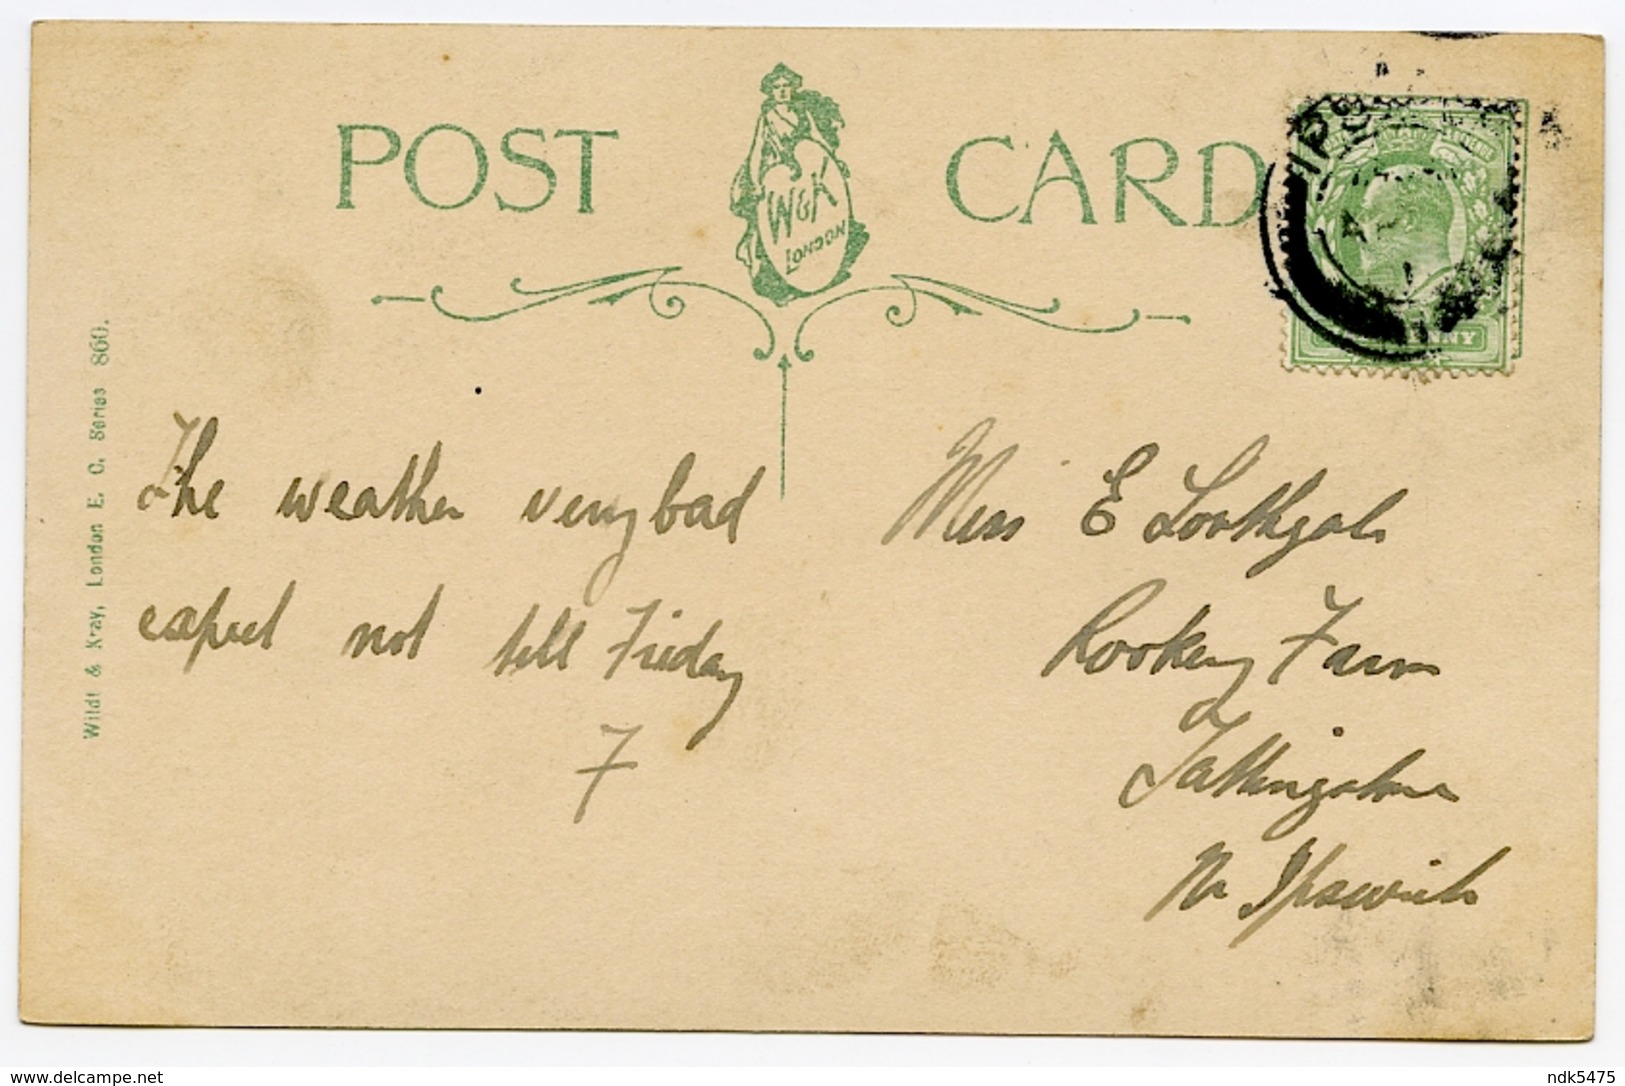 POST CARD
W&K
LONDON
IPS
NNY
Wildt & Kray, London E. C. Series 860.
The weather very bad
expect not till Friday
F
Miss E
Rookery Farm
Tattingstone
Nr Ipswich
delcampe.net
ndk5475